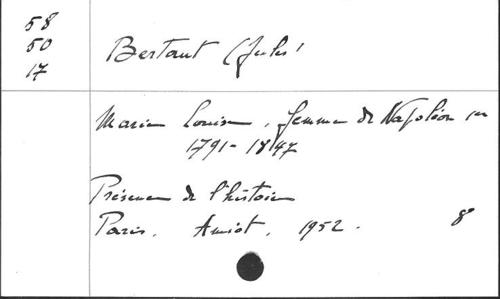 58
50
17
Bertaut (Jules)
Marie Louise, femme de Napoléon 1er
1791-1847
Présence de l'histoire
Paris. Amiot. 1952. 8